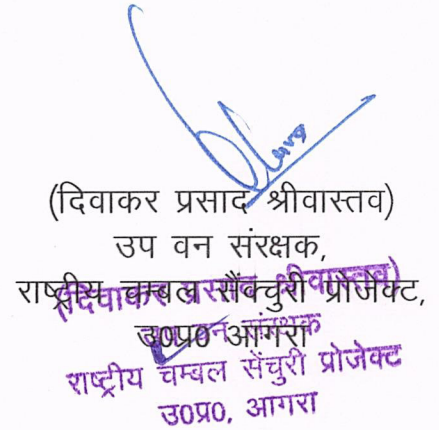 (दिवाकर प्रसाद श्रीवास्तव)
उप वन संरक्षक,
राष्ट्रीय चम्बल सैंक्चुरी प्रोजेक्ट,
(दिवाकर प्रसाद श्रीवास्तव)
उ०प्र० आगरा
उप वन संरक्षक
राष्ट्रीय चम्बल सेंचुरी प्रोजेक्ट
उ०प्र०, आगरा